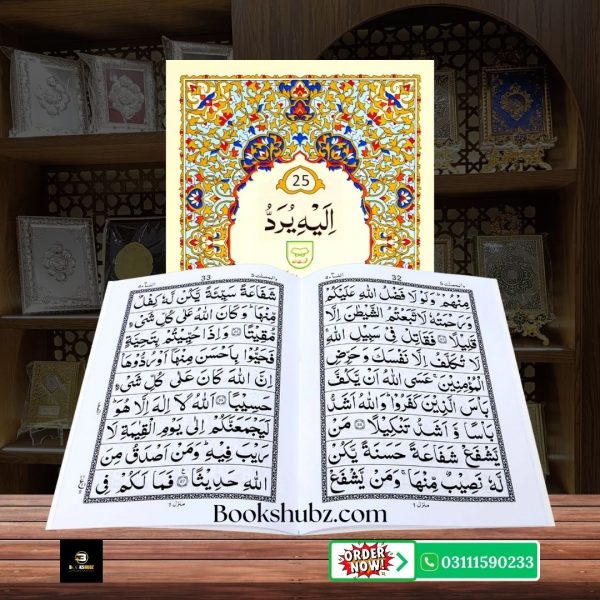 25
اِلَيْهِ يُرَدُّ
32
مِنْهُمْ ؕ وَلَوْلَا فَضْلُ اللّٰهِ عَلَيْكُمْ
وَرَحْمَتُهٗ لَاتَّبَعْتُمُ الشَّيْطٰنَ اِلَّا
قَلِيْلًا ۝ فَقَاتِلْ فِيْ سَبِيْلِ اللّٰهِ ۚ
لَا تُكَلَّفُ اِلَّا نَفْسَكَ وَحَرِّضِ
الْمُؤْمِنِيْنَ ۚ عَسَى اللّٰهُ اَنْ يَّكُفَّ
بَاْسَ الَّذِيْنَ كَفَرُوْا ؕ وَاللّٰهُ اَشَدُّ
بَاْسًا وَّ اَشَدُّ تَنْكِيْلًا ۝ مَنْ
يَّشْفَعْ شَفَاعَةً حَسَنَةً يَّكُنْ
لَّهٗ نَصِيْبٌ مِّنْهَا ۚ وَمَنْ يَّشْفَعْ
منزل ١
33
شَفَاعَةً سَيِّئَةً يَّكُنْ لَّهٗ كِفْلٌ
مِّنْهَا ؕ وَكَانَ اللّٰهُ عَلٰى كُلِّ شَيْءٍ
مُّقِيْتًا ۝ وَاِذَا حُيِّيْتُمْ بِتَحِيَّةٍ
فَحَيُّوْا بِاَحْسَنَ مِنْهَا اَوْ رُدُّوْهَا ؕ
اِنَّ اللّٰهَ كَانَ عَلٰى كُلِّ شَيْءٍ
حَسِيْبًا ۝ اَللّٰهُ لَاۤ اِلٰهَ اِلَّا هُوَ ؕ
لَيَجْمَعَنَّكُمْ اِلٰى يَوْمِ الْقِيٰمَةِ لَا
رَيْبَ فِيْهِ ؕ وَمَنْ اَصْدَقُ مِنَ
اللّٰهِ حَدِيْثًا ۝ فَمَا لَكُمْ فِي
منزل ١
Bookshubz.com
BOOKSHUBZ
ORDER
NOW!
03111590233